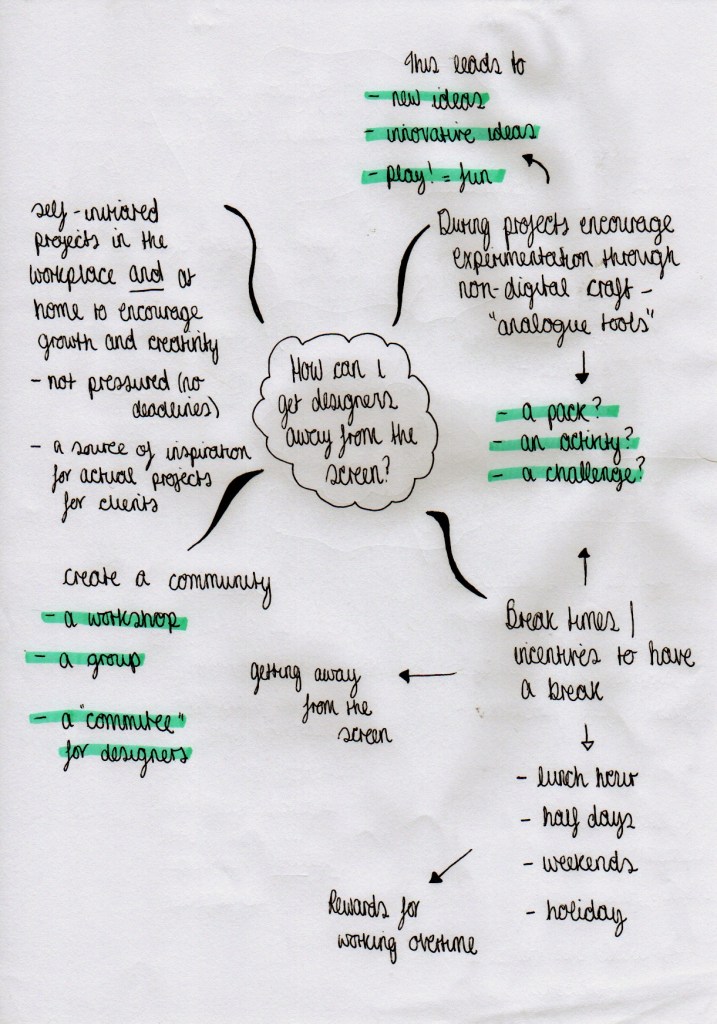 This leads to
- new ideas
- innovative ideas
- play! = fun
self-initiated
projects in the
workplace and at
home to encourage
growth and creativity
- not pressured (no
deadlines)
- a source of inspiration
for actual projects
for clients
During projects encourage
experimentation through
non-digital craft -
"analogue tools"
- a pack?
- an activity?
- a challenge?
How can I
get designers
away from the
screen?
create a community
- a workshop
- a group
- a "commitee"
for designers
Break times /
incentives to have
a break
getting away
from the
screen
- lunch hour
- half days
- weekends
- holiday
Rewards for
working overtime